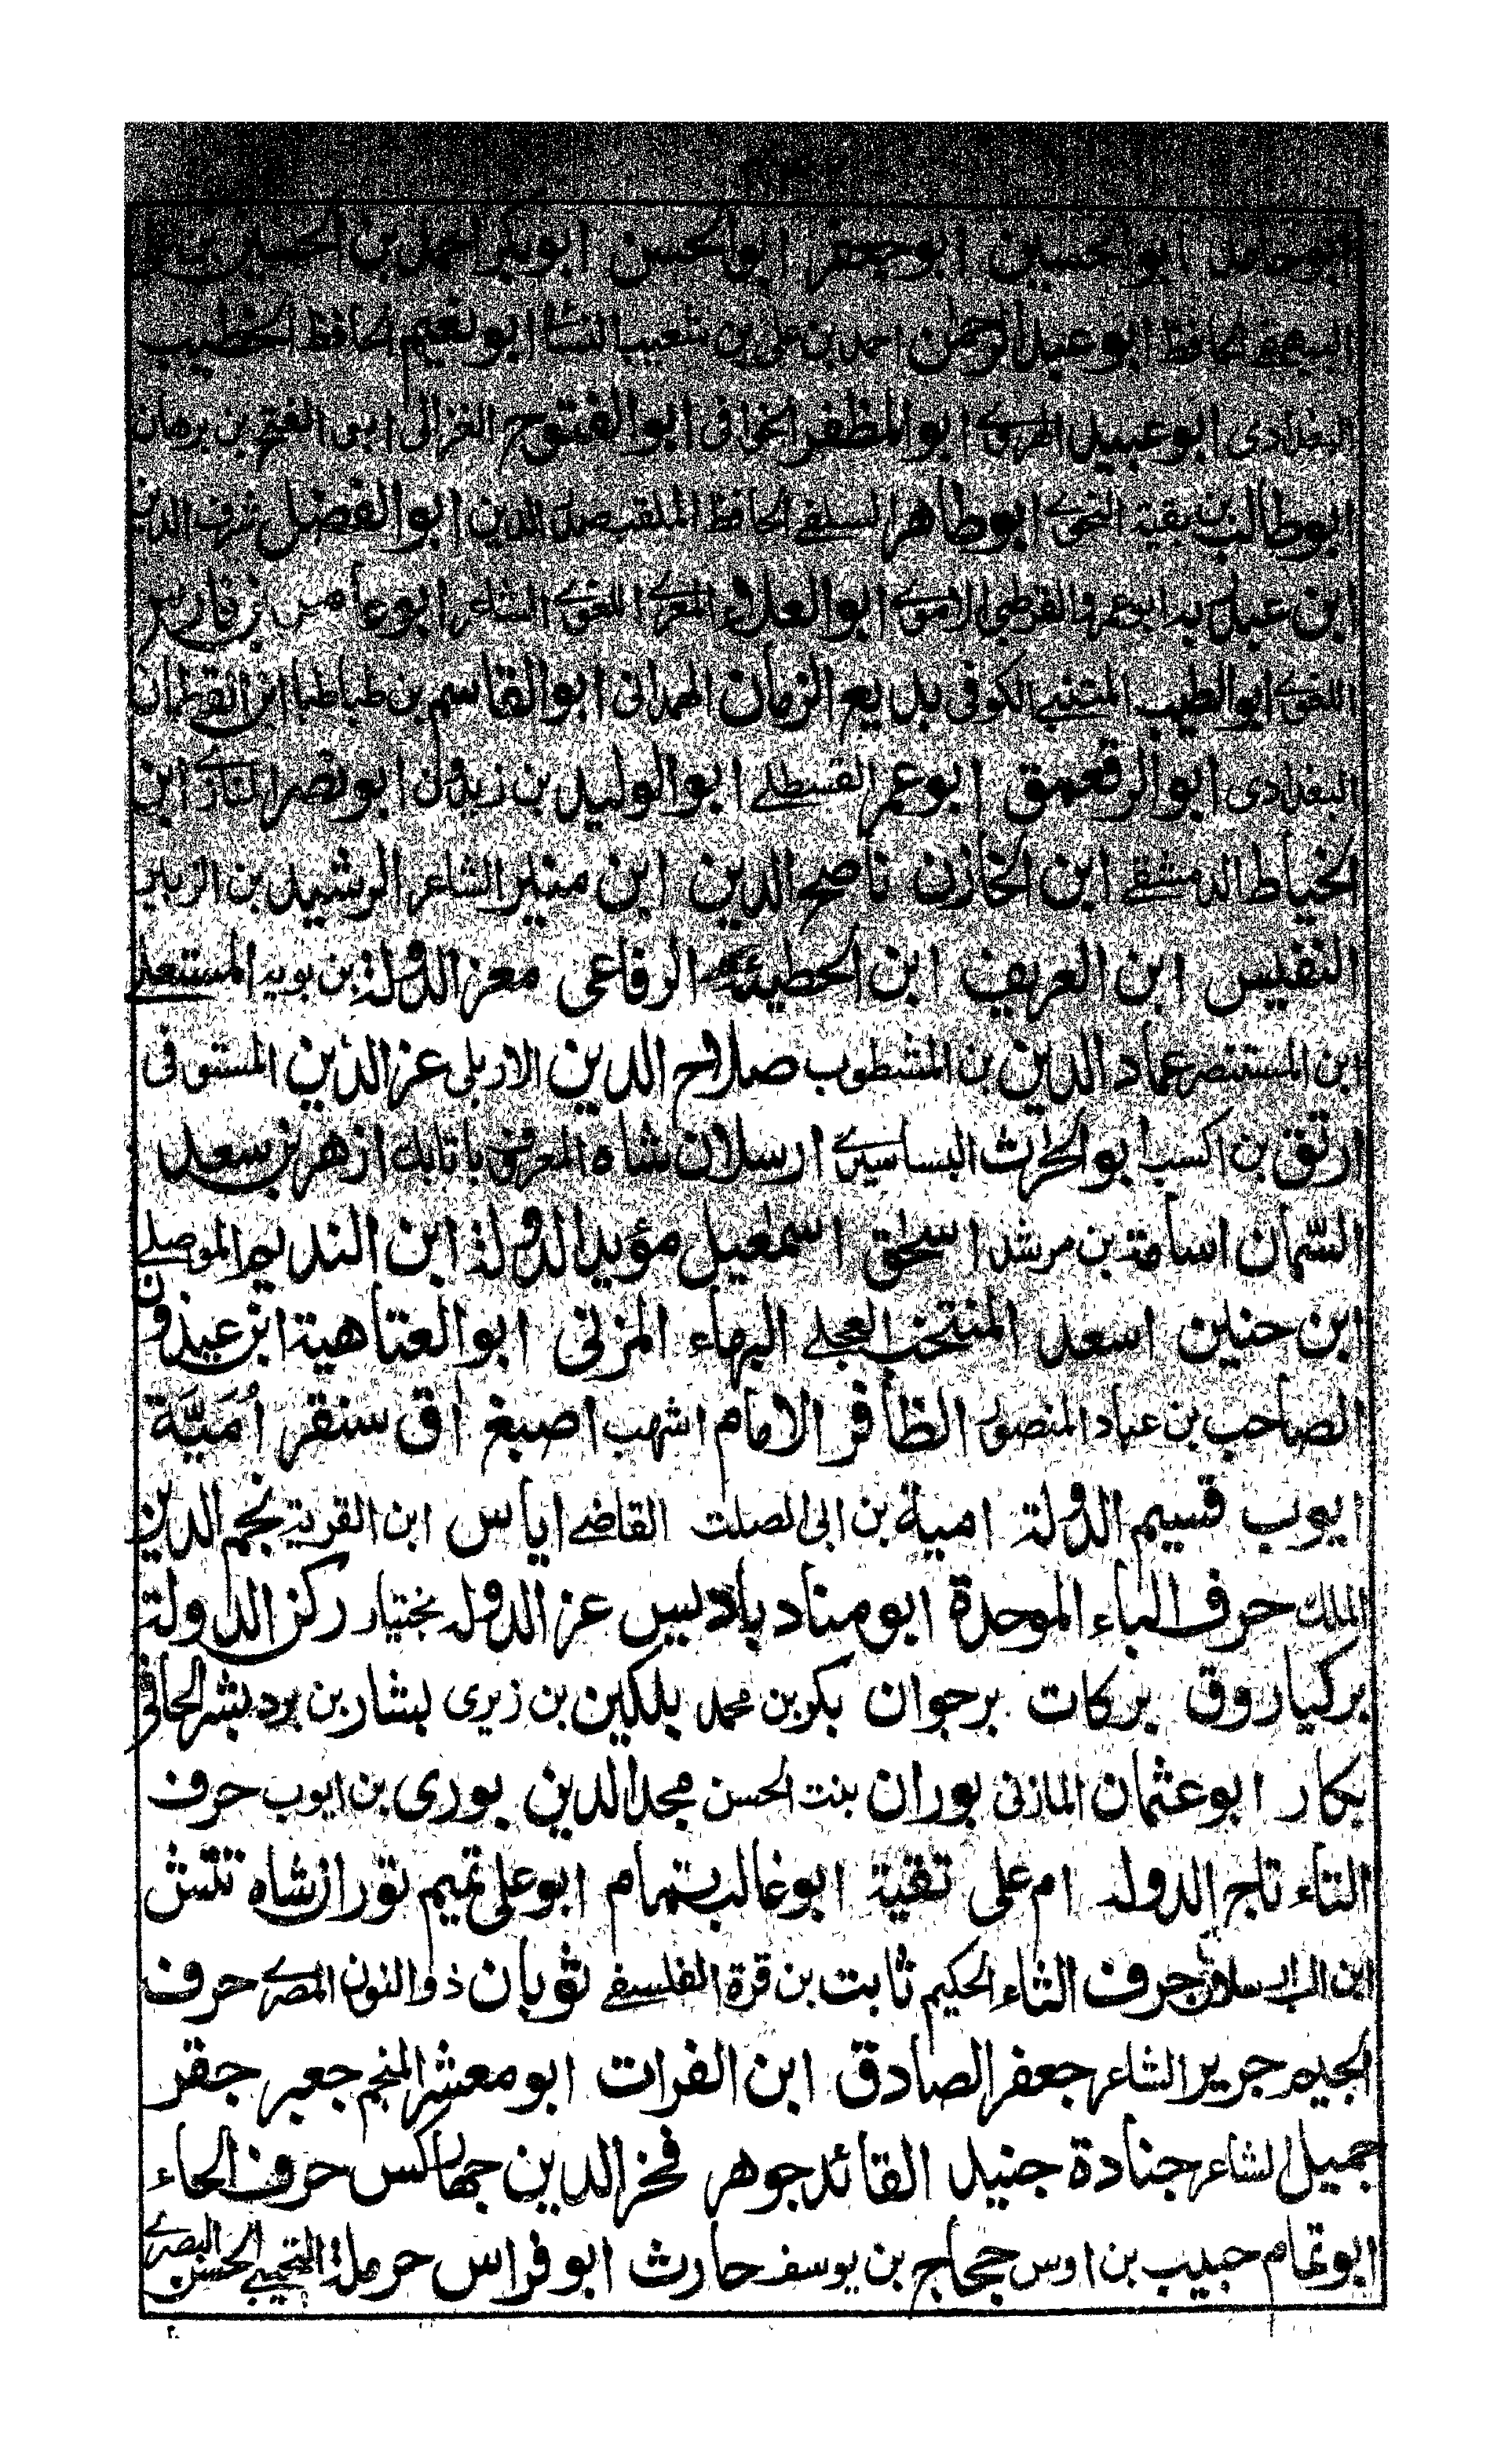 ابوحامل ابوالحسین ابوجعفر ابوالحسن ابوبکر احمد بن الحسین بن علی
البیهقے الحافظ ابوعبدالرحمن احمد بن علی بن شعیب النسائے ابونعیم الحافظ الخطیب
البغدادی ابوعبید الهروے ابوالمظفر الخوافی ابوالفتوح الغزالی ابی الفتح بن برهان
ابوطالب بن بقیة النحوے ابوطاهر السلفے الحافظ الملقب صدر الدین ابوالفضل شرف الدین
ابن عبد ربه ابوعمر القرطبی الاموے ابوالعلاء المعرے اللغوے الشاعر ابوعامر بن فارس
اللغوے ابوالطیب المتنبے الکوفی بدیع الزمان الهمدانی ابوالقاسم بن طباطبا ابن القطان
البغدادی ابوالرقعمق ابوعمر القسطلے ابوالولید بن زیدون ابونصر المنازے ابن
الخیاط الدمشقے ابن الخازن ناصح الدین ابن منیر الشاعر الرشید بن الزبیر
النفیس ابن العریف ابن الحطیئة الرفاعی معز الدولة بن بویه المستعلے
ابن المستنصر عماد الدین بن المشطوب صلاح الدین الاربلی عز الدین المستوفی
ارتق بن اکسب ابوالحرث البساسیرے ارسلان شاه المعروف باتابك ازهر بن سعد
السّمان اسامة بن مرشد اسحٰق اسمٰعیل مؤید الدولة ابن الندیم الموصلے
ابن حنین اسعد المنتخب العجلے البهاء المزنی ابوالعتاهیة ابن عیذون
الصاحب بن عباد المنصور الظافر الامام اشهب اصبغ اق سنقر اُمَیَّة
ایوب قسیم الدولة امیة بن ابی الصلت القاضے ایاس ابن القریة نجم الدین
الملك حرف الباء الموحدة ابومناد بادیس عز الدوله بختیار رکز الدولة
برکیاروق برکات برجوان بکر بن محمد بلکین بن زیری بشار بن برد بشر الحافی
بکار ابوعثمان المازنی بوران بنت الحسن مجد الدین بوری بن ایوب حرف
التاء تاج الدوله ام علی تقیة ابوغالب تمام ابوعلی تمیم توران شاه تتش
ابن الب ارسلان حرف الثاء الحکیم ثابت بن قرة الفلسفے ثوبان ذوالنون المصرے حرف
الجیم جریر الشاعر جعفر الصادق ابن الفرات ابومعشر المنجم جعبر جقر
جمیل الشاعر جنادة جنید القائد جوهر فخر الدین جهارکس حرف الحاء
ابوتمام حبیب بن اوس حجاج بن یوسف حارث ابوفراس حرملة التجیبے الحسن البصرے